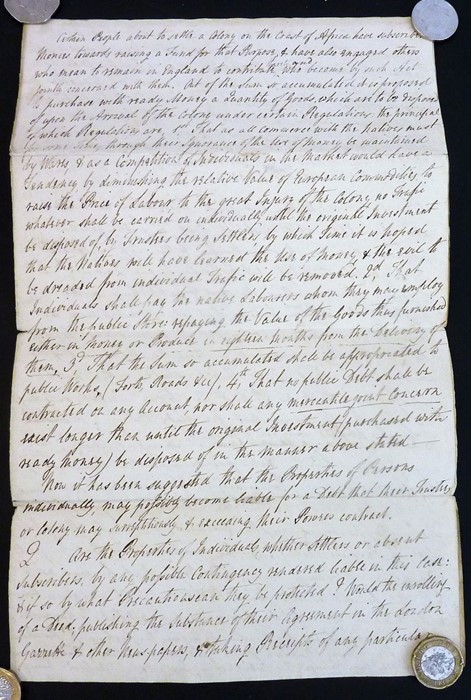 Certain People about to settle a Colony on the Coast of Africa have subscribed
Monies towards raising a Fund for that Purpose, & have also engaged others
who mean to remain in England to contribute become by such Act
jointly concerned with them. Out of the Sum so accumulated it is proposed
to purchase with ready Money a Quantity of Goods, which are to be disposed
of upon the Arrival of the Colony under certain Regulations. the principal
of which Regulations are, 1st That as all commerce with the Natives must
for some time, through their Ignorance of the Use of Money be maintained
by Wares, & as a Competition of Individuals in the Market would have a
Tendency by diminishing the relative Value of European Commodities, to
raise the Price of Labour to the great Injury of the Colony, no Trafic
whatever shall be carried on individually until the original Investment
be disposed of by Trustees being settlers, by which Time it is hoped
that the Natives will have learned the Use of Money, & the evil to
be dreaded from individual Trafic will be removed. 2d That
Individuals shall pay the native Labourers whom they may employ
from the public Store; repaying the Value of the Goods thus furnished
either in Money or Produce in eighteen Months from the Delivery of
them. 3d That the Sum so accumulated shall be appropriated to
public Works, (Forts, Roads &c), 4th That no public Debt shall be
contracted on any Account, nor shall any mercantile joint Concern
exist longer than until the original Investment (purchased with
ready Money) be disposed of in the manner above stated
Now it has been suggested that the Properties of Persons
individually may possibly become liable for a Debt that their Trustees
or Colony may surreptitiously & exceeding their Powers contract.
Q Are the Properties of Individuals, whether Settlers or absent
subscribers, by any possible Contingency rendered liable in this Case:
& if so by what Precautions can they be protected? Would the enrolling
of a Deed, publishing the Substance of their Agreement in the London
Gazette & other News papers, & taking Receipts of any particular